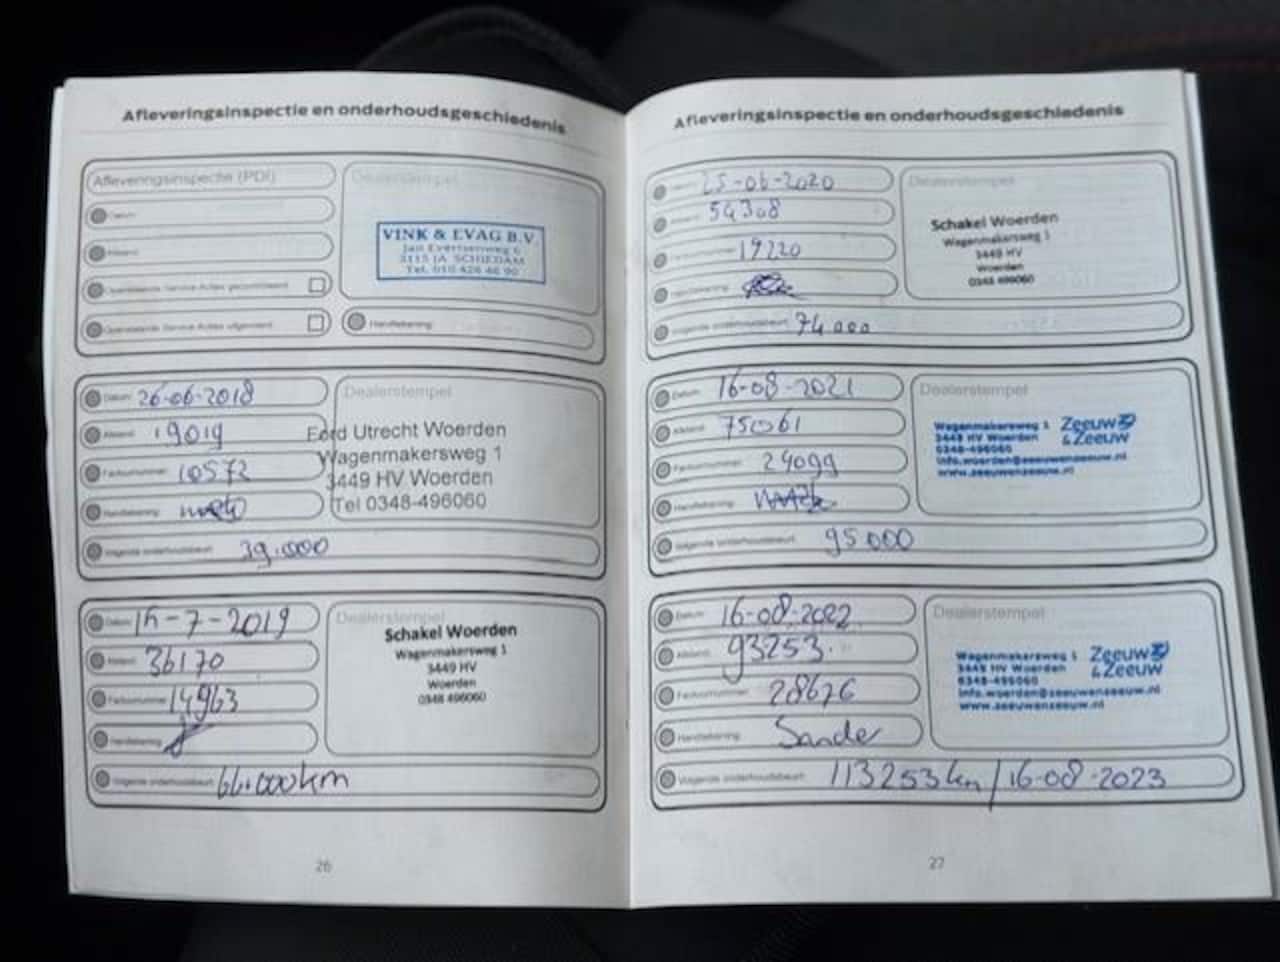 Afleveringsinspectie en onderhoudsgeschiedenis
Afleveringsinspectie (PDI)
Datum
Afstand
Openstaande Service Acties gecontroleerd
Openstaande Service Acties uitgevoerd
Dealerstempel
VINK & EVAG B.V.
Jan Evertsenweg 6
3115 JA SCHIEDAM
Tel. 010 426 46 90
Handtekening
Datum 26-06-2018
Afstand 19019
Factuurnummer 10572
Handtekening
Volgende onderhoudsbeurt 39.000
Dealerstempel
Ford Utrecht Woerden
Wagenmakersweg 1
3449 HV Woerden
Tel 0348-496060
Datum -7-2019
Afstand 36170
Factuurnummer 14963
Handtekening
Volgende onderhoudsbeurt 66.000km
Dealerstempel
Schakel Woerden
Wagenmakersweg 1
3449 HV
Woerden
0348 496060
26
Afleveringsinspectie en onderhoudsgeschiedenis
Datum 25-06-2020
Afstand 54308
Factuurnummer 19220
Handtekening
Volgende onderhoudsbeurt 74.000
Dealerstempel
Schakel Woerden
Wagenmakersweg 1
3449 HV
Woerden
0348 496060
Datum 16-08-2021
Afstand 75061
Factuurnummer 24099
Handtekening
Volgende onderhoudsbeurt 95000
Dealerstempel
Wagenmakersweg 1
3449 HV Woerden
0348-496060
info.woerden@zeeuwenzeeuw.nl
www.zeeuwenzeeuw.nl
Zeeuw
& Zeeuw
Datum 16-08-2022
Afstand 93253.
Factuurnummer 28676
Handtekening Sander
Volgende onderhoudsbeurt 113253km/16-08-2023
Dealerstempel
Wagenmakersweg 1
3449 HV Woerden
0348-496060
info.woerden@zeeuwenzeeuw.nl
www.zeeuwenzeeuw.nl
Zeeuw
& Zeeuw
27